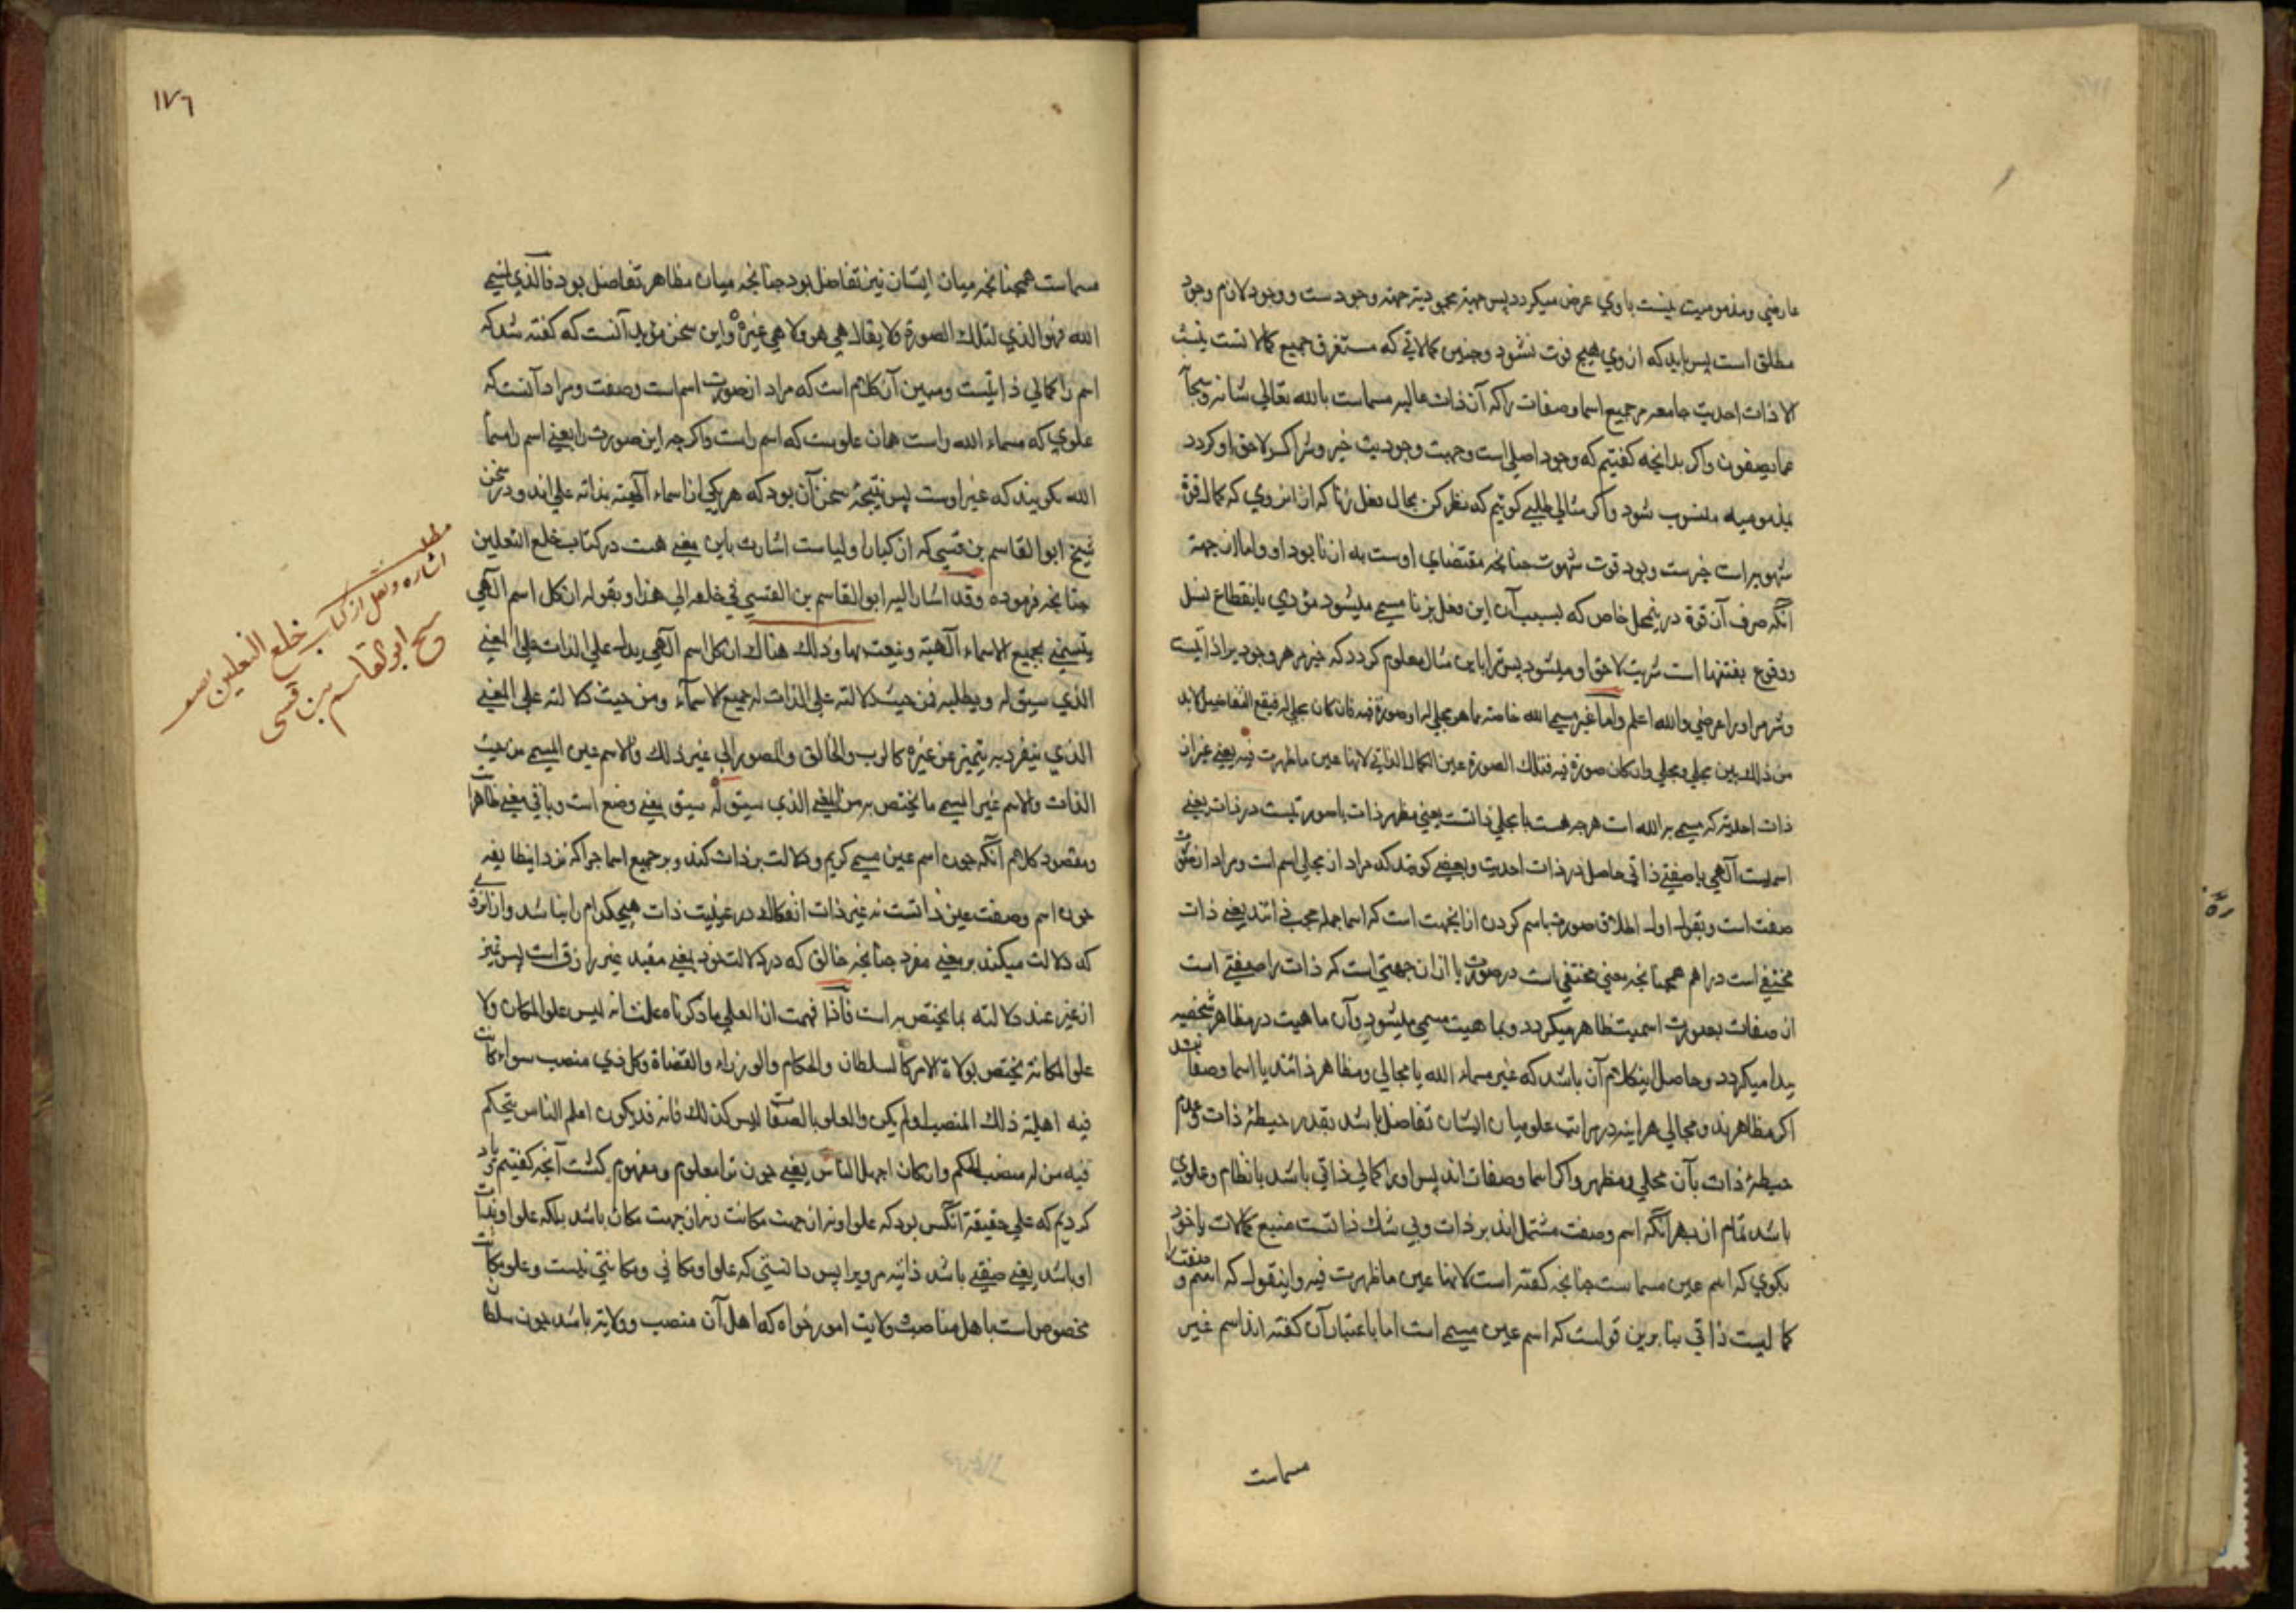 عارضی ومذمومیت نیست باوی عرض میکردد پس جهة محمودیته جهة وجودست ووجود لازم وجود
مطلق است پس باید که از وی هیچ فوت نشود وچنین کمالاتی که مستغرق جمیع کمالاتست نیست
الا ذات احدیت جامعه مر جمیع اسما وصفات را که آن ذات عالیه مسماست بالله تعالی شانه وسبحانه
عما یصفون واکر بدانچه کفتیم که وجود اصلی است وجهت وجودیت خیر وشر اکر لاحق او کردد
بمذمومیه منسوب شود واکر مثالی طلبی کوییم که نظر کن بحال فعل زنا که از آن روی که کمال قوة
شهویه است خیرست وبود قوت شهوت چنانچه مقتضای اوست به از نابود او واما از جهة
آنکه صرف آن قوة در محل خاص که بسبب آن این فعل بزنا مسمی میشود مؤدی بانقطاع نسل
ووقوع بفتنها است شریت لاحق او میشود پس ترا باین مثال معلوم کردد که خیر مر هر وجود را ذاتیست
وشر مر او را عرضی والله اعلم واما غیر مسمی الله خاصة مما هو مجلی له او صورة فیه فان کان مجلی له فیقع التفاضل لا بد
من ذلک بین مجلی ومجلی وان کان صورة فیه فتلک الصورة عین الکمال الذاتی لانها عین ما ظهرت فیه یعنی غیر از
ذات احدیة که مسمی به الله است هر چه هست یا مجلی ذاتست یعنی مظهر ذات یا صورتیست در ذات یعنی
اسمیست آلهی یا صفتی ذاتی حاصل در ذات احدیت وبعضی کویند که مراد از مجالی اسم است ومراد از صورت
صفت است وبقول اول اطلاق صورت باسم کردن از آنجهت است که اسما جمله مختفی اند یعنی ذات
مختفی است در اهم همچنانچه معنی مختفی است در صورت یا از ان جهتی است که ذات را صفتی است
از صفات بصورت اسمیت ظاهر میکردد وبماهیت مسمی میشود وآن ماهیت در مظاهر شخصیه
پیدا میکردد وحاصل اینکلام آن باشد که غیر مسماء الله یا مجالی ومظاهر ذاتند یا اسما وصفات
اکر مظاهرند ومجالی هر اینه در مراتب علو میان ایشان تفاضل باشد بقدر احیطۀ ذات وعدم
حیطۀ ذات بآن مجلی ومظهر واکر اسما وصفات اند پس او را کمالی ذاتی باشد بانظام وعلوی
باشد تمام از بهر آنکه اسم وصفت مشتمل اند بر ذات وبی شک ذاتست منبع کمالات یا خود
بکوی که اسم عین مسماست چنانچه کفته است لانها عین ما ظهرت فیه واینقول که اسم وصفت را
کمالیست ذاتی بنا برین قولست که اسم عین مسمی است اما باعتبار آن کفته اند اسم غیر
مسماست
١٧٦
مسماست همچنانچه میان ایشان نیز تفاضل بود چنانچه میان مظاهر تفاضل بود فالذی لمسمی
الله فهو الذی لتلک الصورة ولا یقال هی هو ولا هی غیره واین سخن مؤید آنست که کفته شد که
اسم را کمالی ذاتیست ومبین آن کلام است که مراد از صورت اسم است وصفت ومراد آنست که
علوی که مسماء الله راست همان علویست که اسم راست واکر چه این صورت را یعنی اسم را مسما
الله نکویند که غیر اوست پس نتیجۀ سخن آن بود که هر یکی از اسماء آلهیة بذاته علی اند ودر سخن
شیخ ابو القاسم بن قسی که از کبار اولیاست اشارت باین معنی هست در کتاب خلع النعلین
چنانچه فرموده وقد اشار الیه ابو القاسم بن القسی فی خلعه الی هذا وبقوله ان کل اسم آلهی
یتسمی بجمیع الاسماء آلهیة وینعت بها وذلک هناک ان کل اسم آلهی یدل علی الذات وعلی المعنی
الذی سیق له ویطلبه فمن حیث دلالته علی الذات له جمیع الاسماء ومن حیث دلالته علی المعنی
الذی ینفرد به یتمیز عن غیره کالرب والخالق والمصور الی غیر ذلک والاسم عین المسمی من حیث
الذات والاسم غیر المسمی ما یختص به من المعنی الذی سیق له سیق یعنی وضع است وباقی معنی ظاهرست
ومقصود کلام آنکه چون اسم عین مسمی کریم ودلالت بر ذات کند وبر جمیع اسما چرا که نزد اینطایفه
چون اسم وصفت عین ذاتست نه غیر ذات انفکاک در عینیت ذات هیچکدام را نباشد واز آنروی
که دلالت میکند بر معنی مفرد چنانچه خالق که در دلالت خود بمعنی مقید غیر رازق است پس تمیز
از غیر عند دلالته بما یختص به است فاذا فهمت ان العلی ما ذکرناه علمت انه لیس علو المکان ولا
علو المکانة یختص بولاة الامر کالسلطان والحکام والوزراء والقضاة وکل ذی منصب سواء کانت
فیه اهلیة ذلک المنصب او لم یکن والعلو بالصفات لیس کذلک فانه قد یکون اعلم الناس یتحکم
فیه من له منصب التحکم وان کان اجهل الناس یعنی چون ترا معلوم ومفهوم کشت آنچه کفتیم ویاد
کردیم که علی حقیقة آنکس بود که علو او نه از جهت مکانت ونه از جهت مکان باشد بلکه علو او بذات
او باشد یعنی صفتی باشد ذاتیه مر ویرا پس دانستی که علو او مکانی ومکانتی نیست وعلو مکانت
مخصوص است باهل مناصب وولایت امور خواه که اهل آن منصب وولایة باشد چون سلطان
مطلب
اشاره ونقل از کتاب خلع النعلین
شیخ ابو القاسم بن قسی